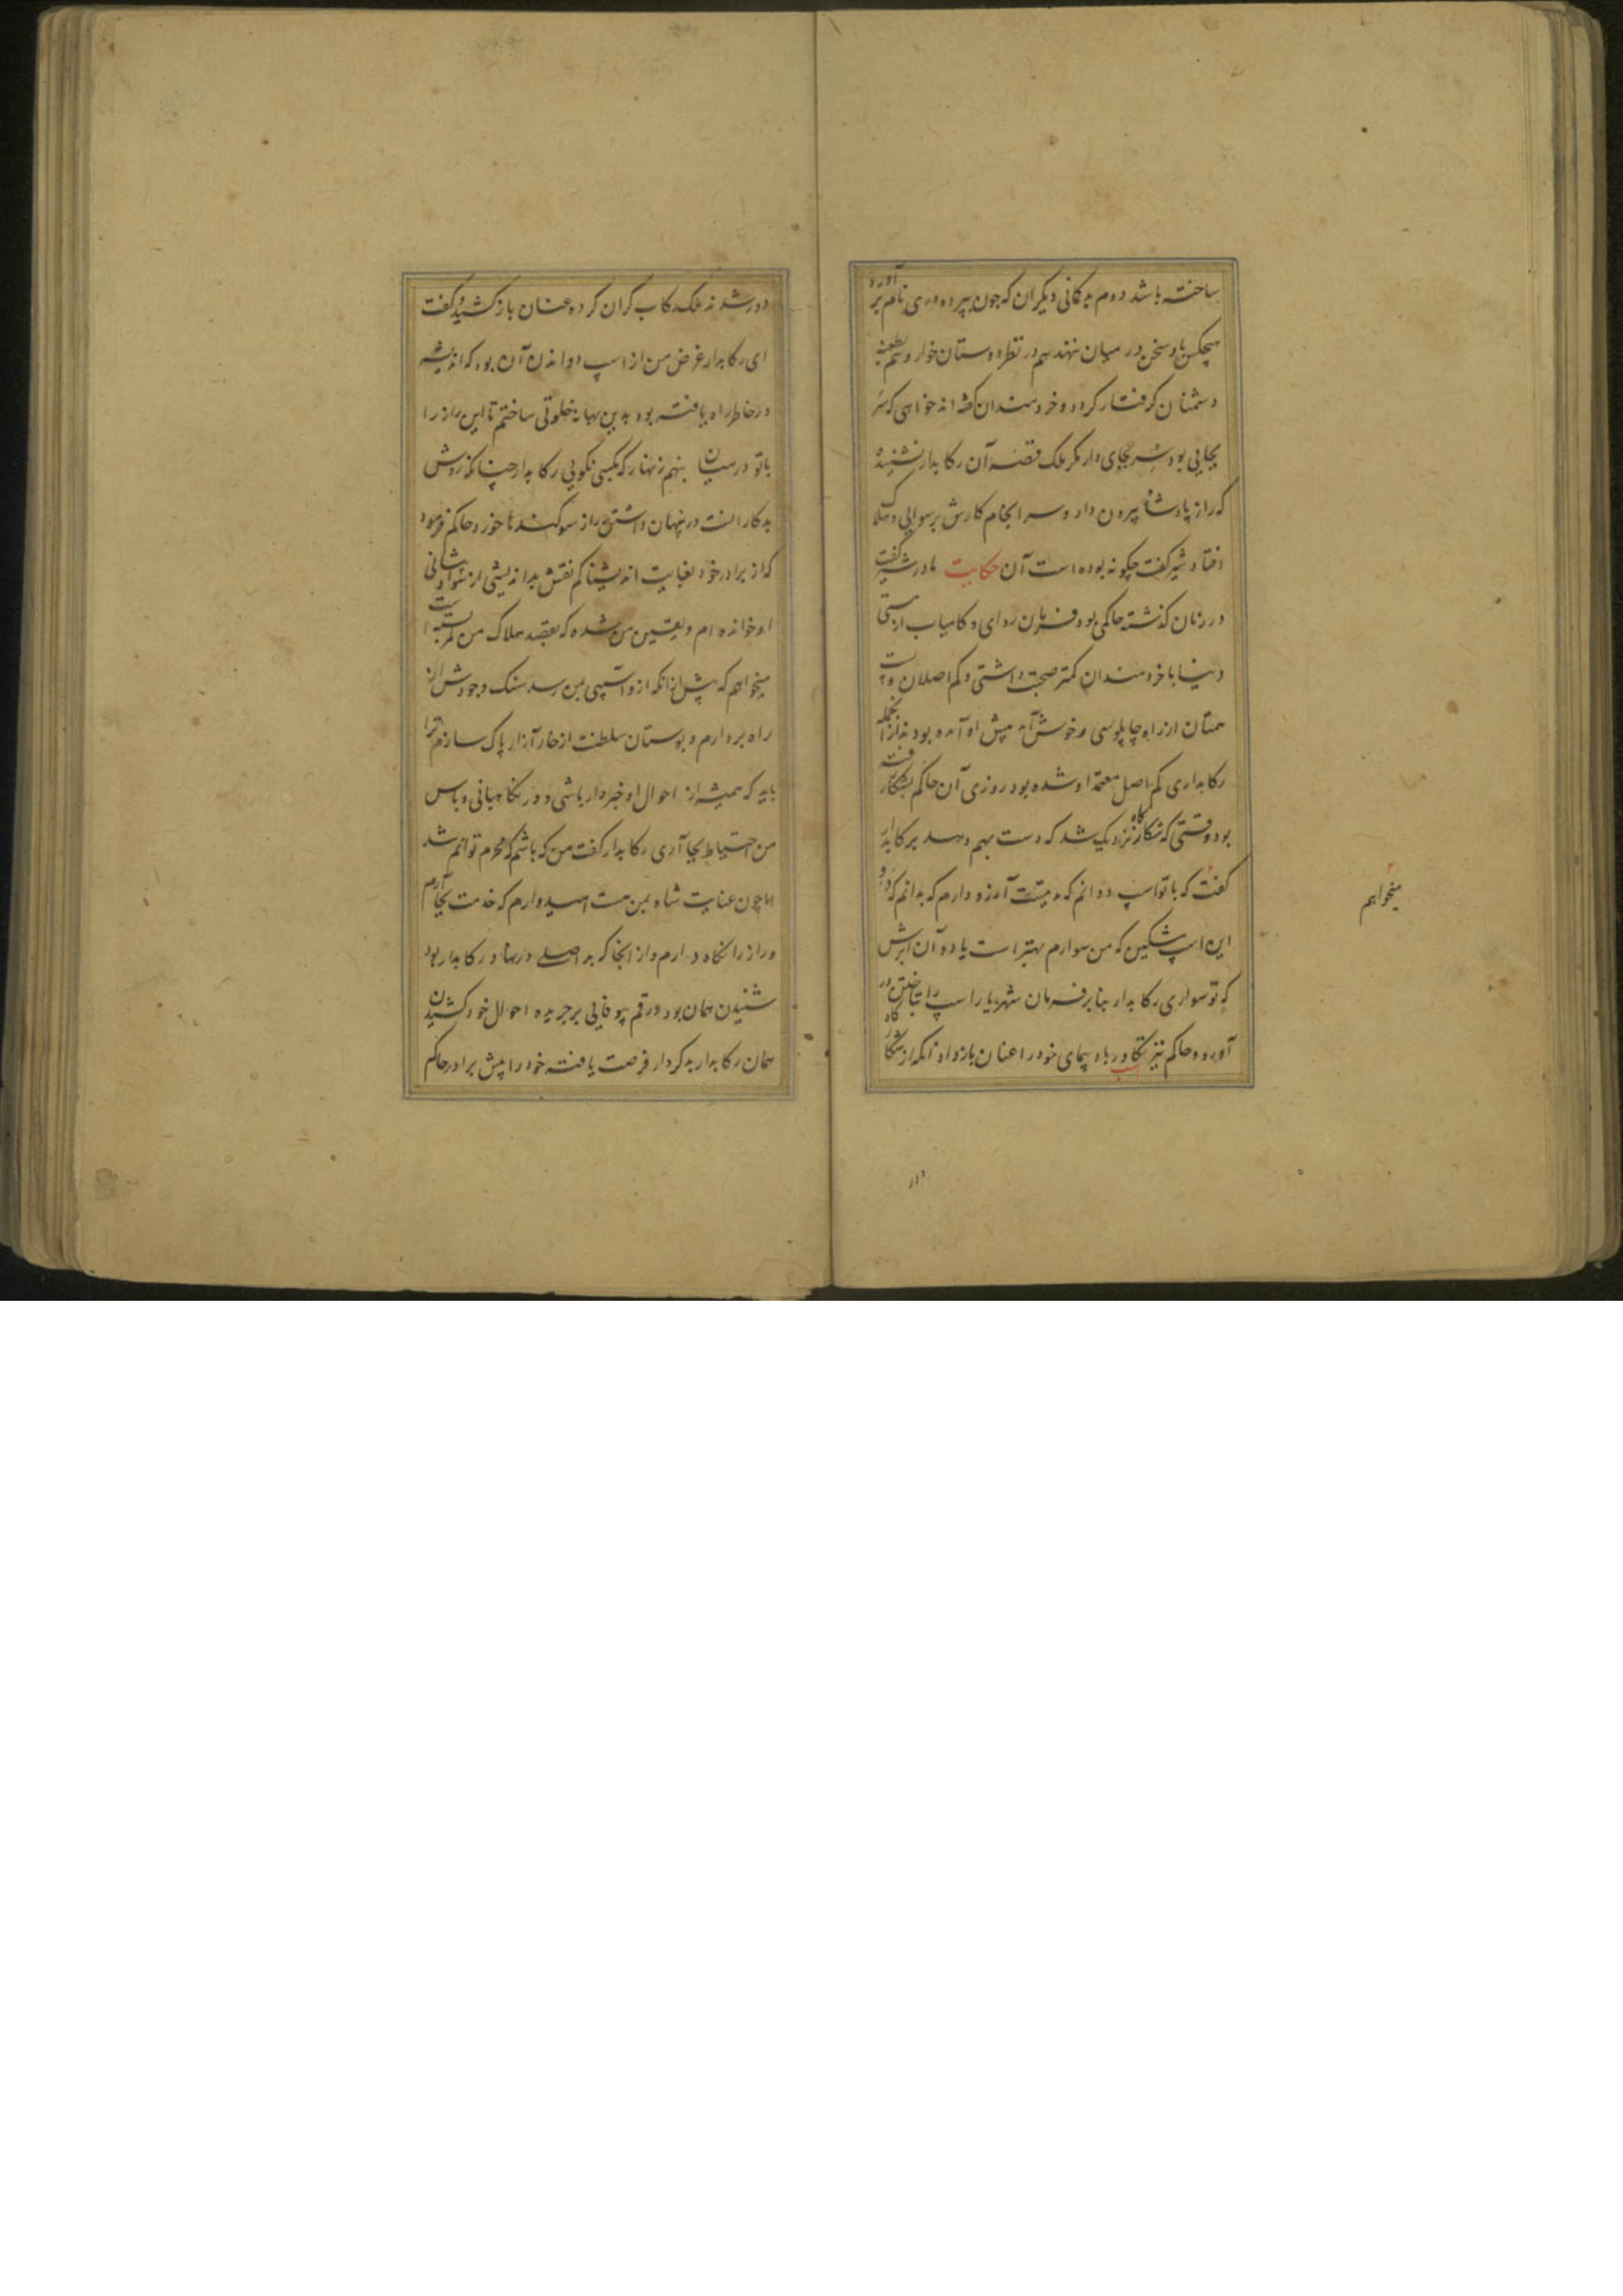 ساخته باشد دوم بدکمانی دیکران که چون بپرده دری نام برآورد
هیچکس باو سخن در میان ننهند هم در نظر دوستان خوار و هم بطعنه
دشمنان کرفتار کردد و خردمندان کفته اند خواهی که سر
بجایی بود سر بجای دار مکر ملک قصه آن رکابدار نشنیده
که راز پادشاه بیرون داد و سرانجام کارش برسوایی و هلاک
افتاد شیر کفت چکونه بوده است آن حکایت مادر شیر کفت
در زمان کذشته حاکمی بود فرمان روای و کامیاب از مستی
دنیا با خردمندان کمتر صحبت داشتی و کم اصلان
از راه چاپلوسی و خوش آمد پیش او آمده بودند از انجمله
رکابداری کم اصل معتمد او شده بود روزی آن حاکم بشکار رفته
بود وقتی که شکارگاه نزدیک شد که دست بهم دهد برکابدار
کفت که با تو اسپ دوانم که مدتیست آرزو دارم که بدانم که دو
میخواهم
این اسپ مشکین که من سوارم بهتر است یا دو آن ابرش
که تو سواری رکابدار بنا بر فرمان شهریار اسپ را بتاختن در
آورد و حاکم نیز تکاور باد پیمای خود را عنان باز داد آنکه از شکارگاه
اسب
دور
دور شدند ملک رکاب کران کرده عنان باز کشید و کفت
ای رکابدار غرض من از اسپ دوانیدن آن بود که اندیشه
در خاطر راه یافته بود بدین بهانه خلوتی ساختم تا این راز را
با تو در میان بنهم زنهار که بکسی نکویی رکابدار چنانکه روش
بدکار است در پنهان داشتن راز سوکندها خورد حاکم فرمود
که از برادر خود بغایت اندیشناکم نقش بداندیشی از سواد پیشانی
او خوانده ام و یقین من شده که بقصد هلاک من کمر بسته است
میخواهم که پیش از آنکه از و آسیبی بمن رسد سنک وجودش از
راه بردارم و بوستان سلطنت از خار آزار پاک سازم ترا
باید که همیشه از احوال او خبردار باشی و در نکاهبانی و پاس
من احتیاط بجا آری رکابدار کفت من که باشم که محرم توانم شد
اما چون عنایت شاه بمن هست امیدوارم که خدمت بجا آرم
و راز را نکاه دارم و از انجا که بد اصلی در نهاد رکابدار بود
شنیدن همان بود و رقم بیوفایی بر جریده احوال خود کشیدن
همان رکابدار بدکردار فرصت یافته خود را پیش برادر حاکم